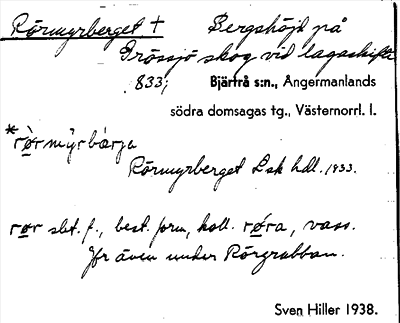 Rörmyrberget † Bergshöjd på
Grössjö skog vid lagaskifte
1833; Bjärtrå s:n., Ångermanlands
södra domsagas tg., Västernorrl. l.
*rö̀rmýrbärja
Rörmyrberget Lsk hdl. 1833.
rør sbt. f., best. form, koll. røra, vass.
Jfr även under Rörgrubban.
Sven Hiller 1938.